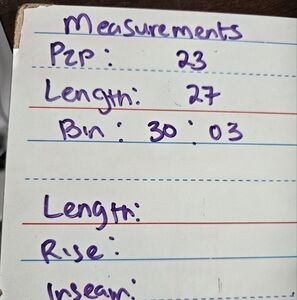 Measurements
P2P: 23
Length: 27
Bin: 30:03
Length:
Rise:
Inseam: